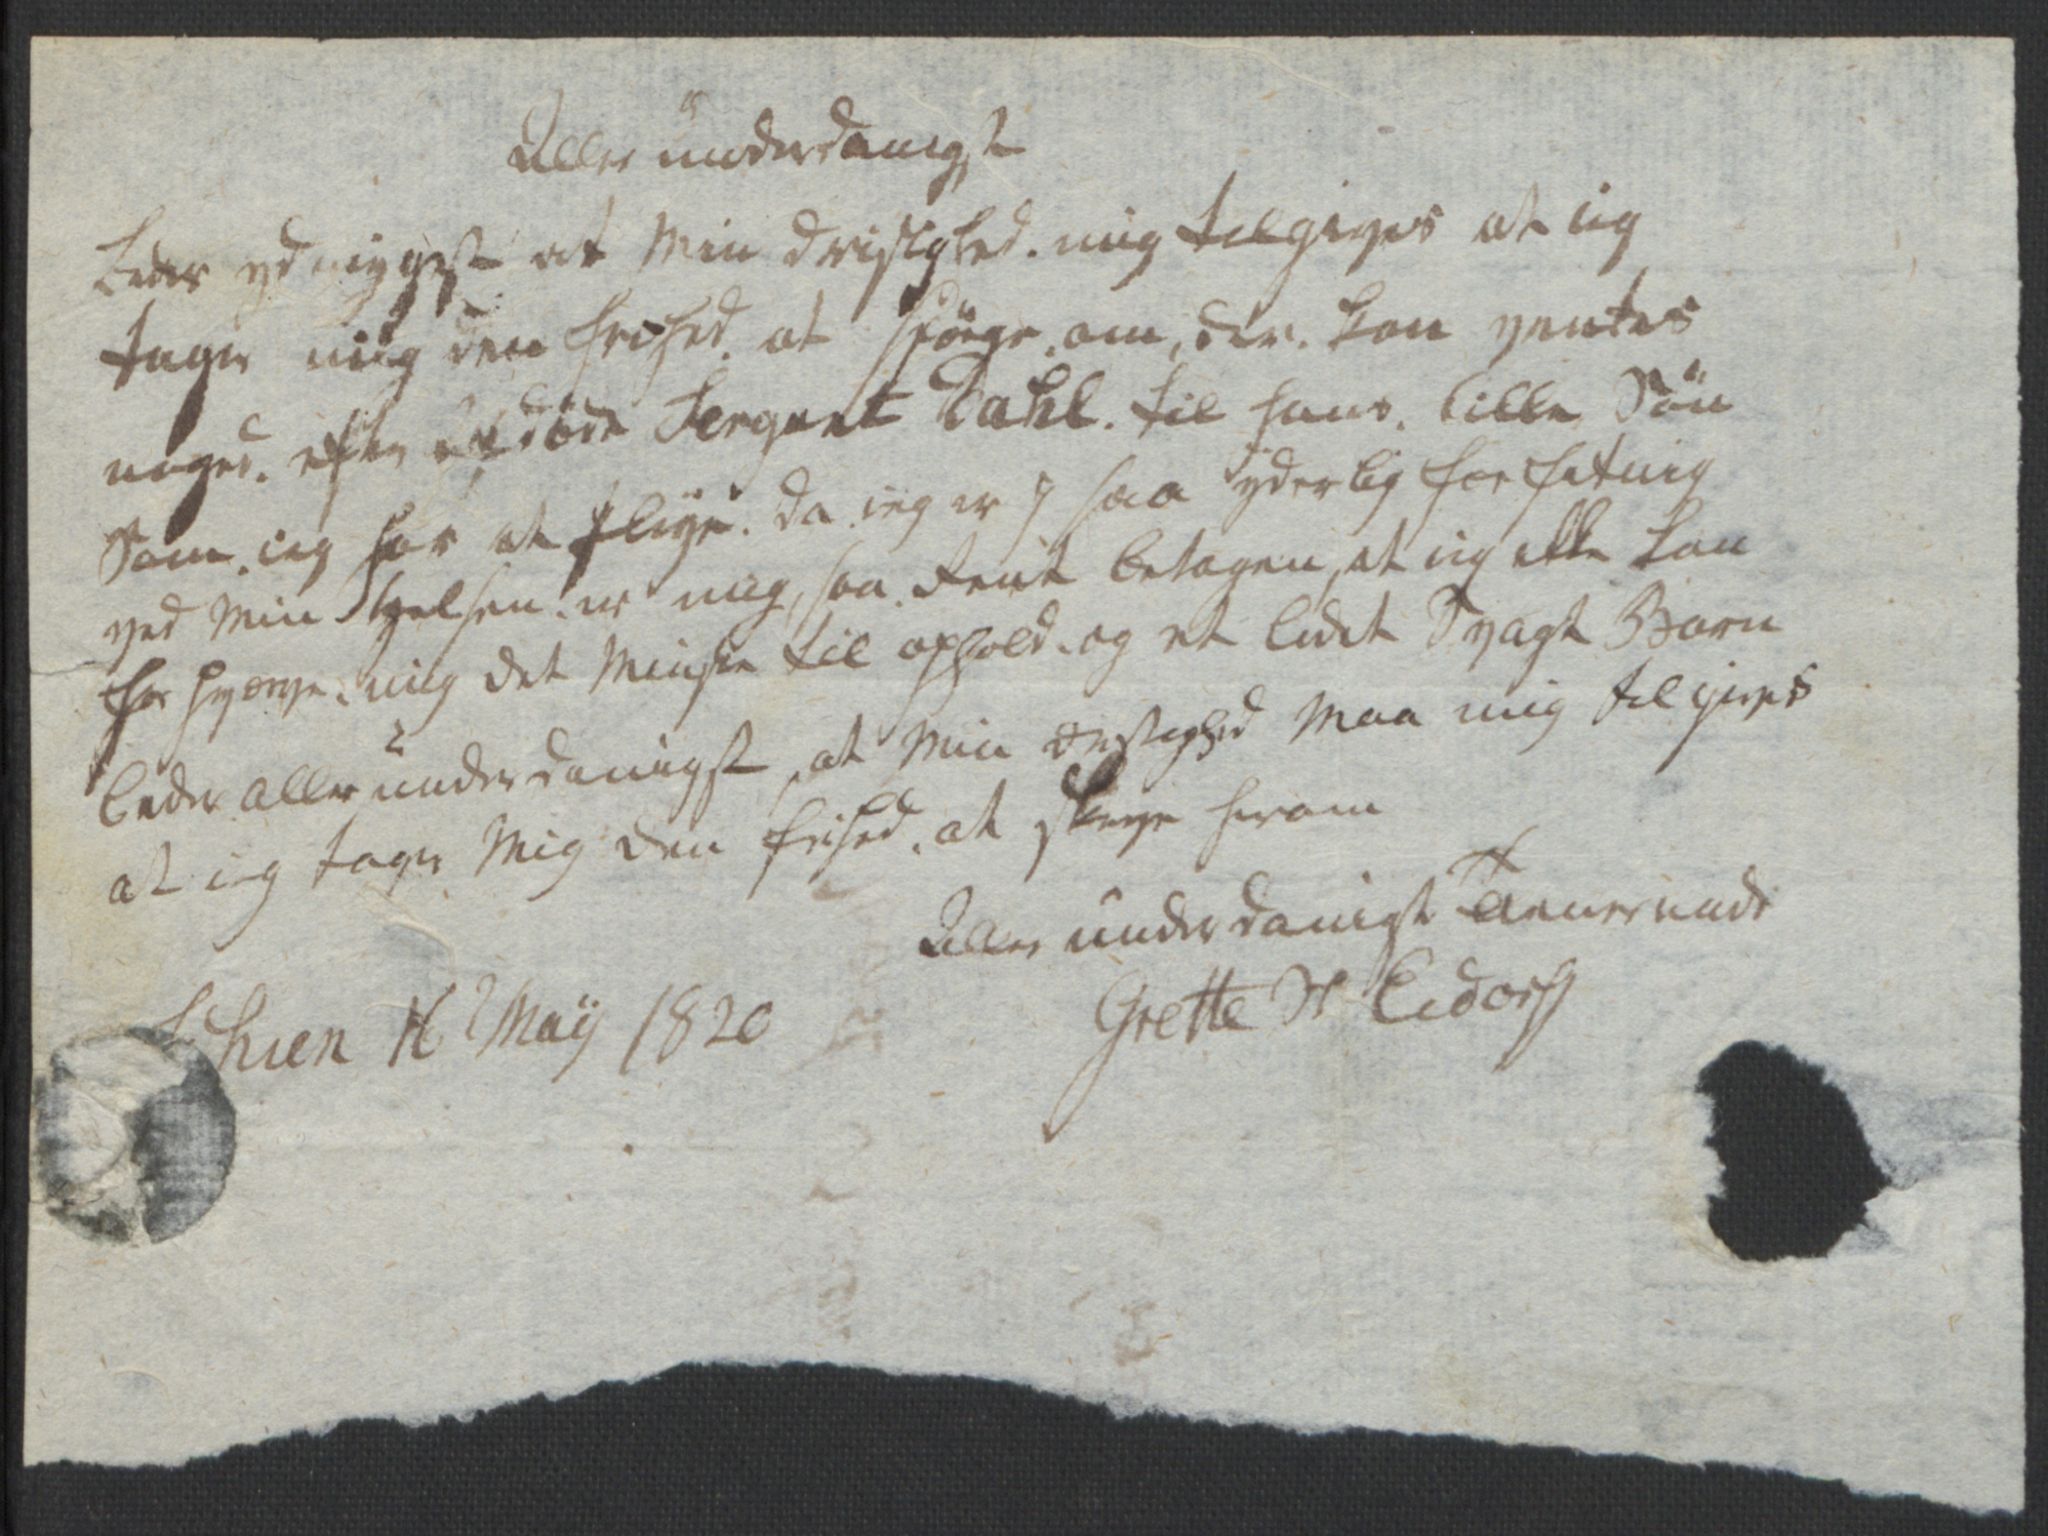 Aller underdanigst
beder ydmygst at Min dristighed. mig tilgives at ieg
tager mig den frihed. at spörge. om, der. kan ventes
noged. efter afdöde Sergent Dahl. til hans. lille Sön
Som. ieg har at pleye. da ieg er i saa yderlig forfatnig
ved Min helsen. er mig, saa. Rent betagen, at ieg ikke kan
for hverve. mig det Minste til ophold. og et lidet Svagt Barn
beder aller underdanigst, at Min drestighed Maa mig tilgives
at ieg tager Mig den frihed. at skrive herom
Aller underdanigst Tienerinde
Grette H Eidorff
Schien Maÿ 1820